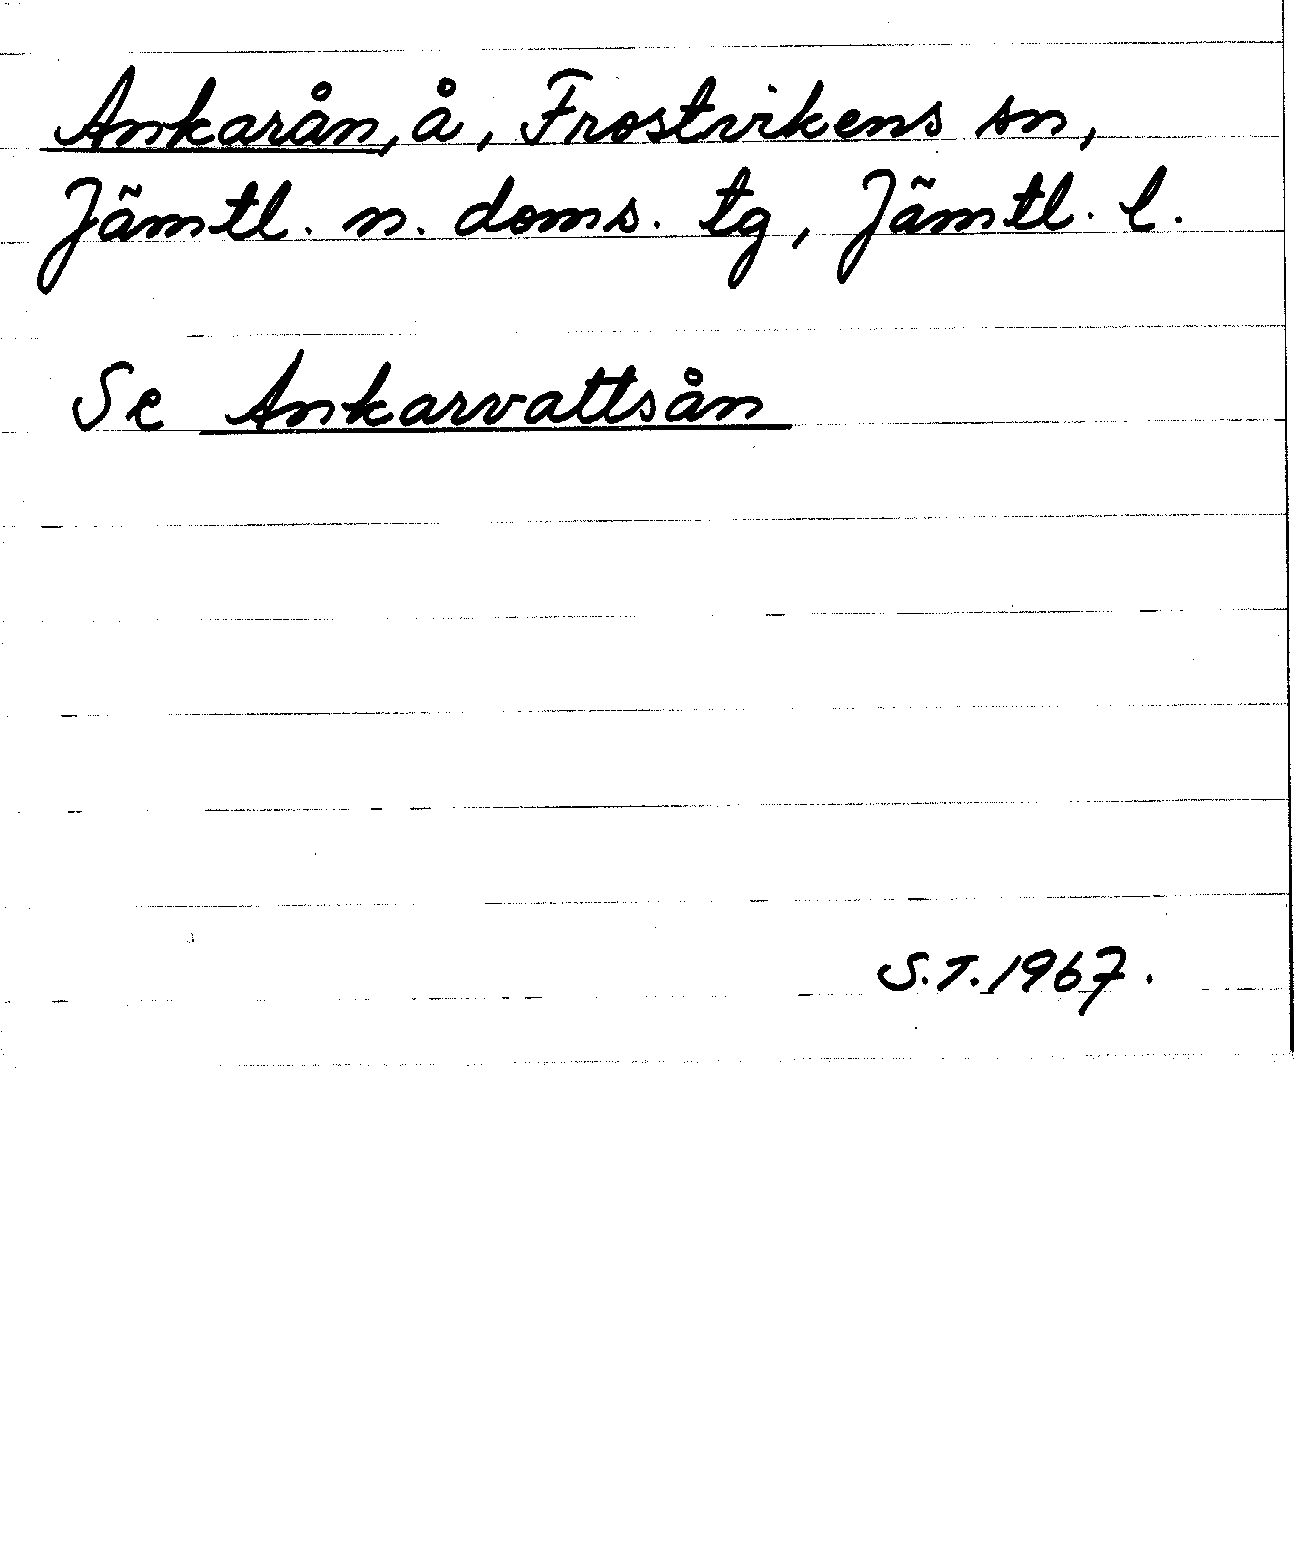 Ankarån, å, Frostvikens sn,
Jämtl. n. doms. tg, Jämtl. l.
Se Ankarvattsån
S.T. 1967.